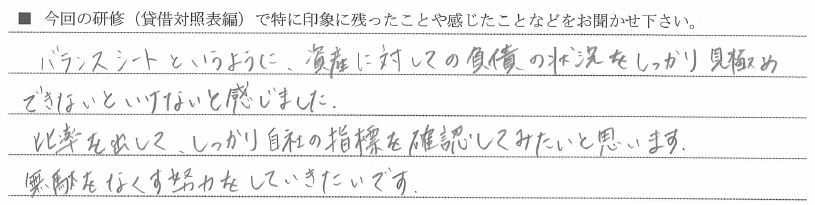 ■ 今回の研修（貸借対照表編）で特に印象に残ったことや感じたことなどをお聞かせ下さい。
バランスシートというように、資産に対しての負債の状況をしっかり見極め
できないといけないと感じました.
比率を出して、しっかり自社の指標を確認してみたいと思います.
無駄をなくす努力をしていきたいです.